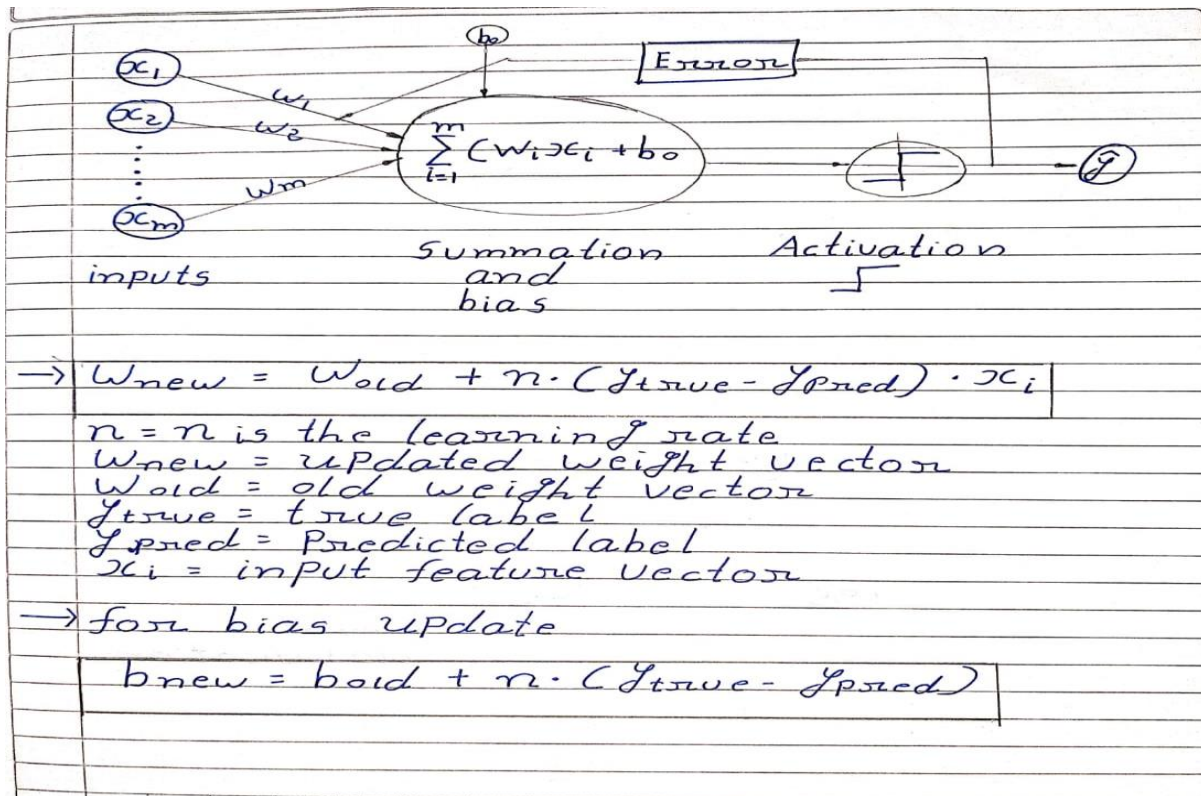 b₀
Error
x₁
w₁
x₂
w₂
m
∑ (wᵢxᵢ + b₀
i=1
ŷ
wₘ
xₘ
inputs
summation
and
bias
Activation
→ Wnew = Wold + n. (ytrue - ypred) . xᵢ
n = n is the learning rate
Wnew = updated weight vector
Wold = old weight vector
ytrue = true label
ypred = Predicted label
xᵢ = input feature vector
→ for bias update
bnew = bold + n. (ytrue - ypred)